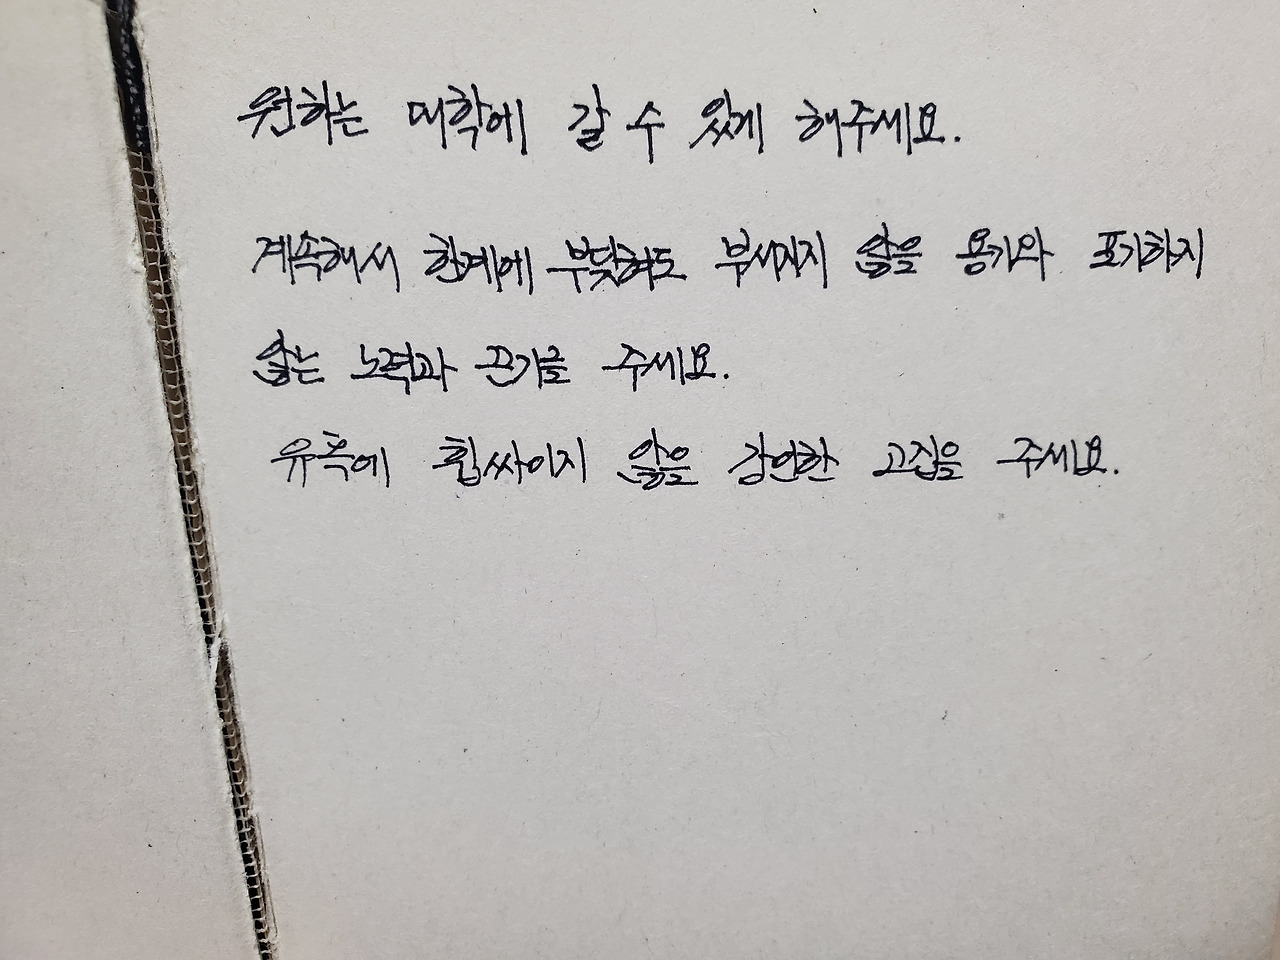 원하는 대학에 갈 수 있게 해주세요.
계속해서 한계에 부딪혀도 부서지지 않을 용기와 포기하지
않는 노력과 끈기를 주세요.
유혹에 휩싸이지 않을 강인한 고집을 주세요.